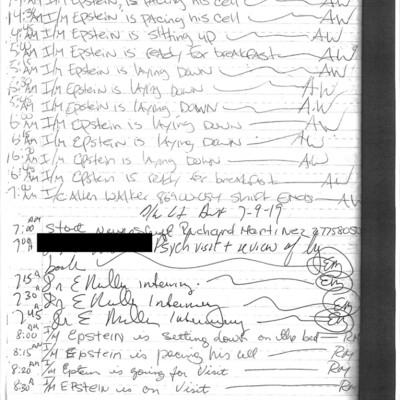 I/M EPSTEIN, is pacing his cell AW
4:30 AM I/M Epstein is pacing his cell AW
4:45 AM I/M EPSTEIN is sitting up AW
5:00 AM I/M EPSTEIN is ready for breakfast AW
AM I/M Epstein is laying DOWN AW
5:30 AM I/M EPSTEIN is laying DOWN AW
5:45 AM I/M EPSTEIN is laying DOWN A.W
6:00 AM I/M EPSTEIN is laying DOWN AW
6:15 AM I/M EPSTEIN is laying DOWN AW
6:30 I/M Epstein is laying DOWN AW
6:45 AM I/M EPSTEIN is ready for breakfast AW
7:00 AM I/C Allen Walker shift ENDS AW
7-9-19
7:00 AM Start Richard Martinez
7:00 Psych visit + review of log
book EM
7:15 A Dr E Interview. EM
7:30 A Dr E Interview EM
7:45 AM Dr E EM
8:00 AM I/M EPSTEIN is setting down on the bed Rm
8:15 AM I/M Epstein is pacing his cell Rm
8:20 AM I/M Epstein is going for visit Rm
8:30 A I/M EPSTEIN is on visit Rm